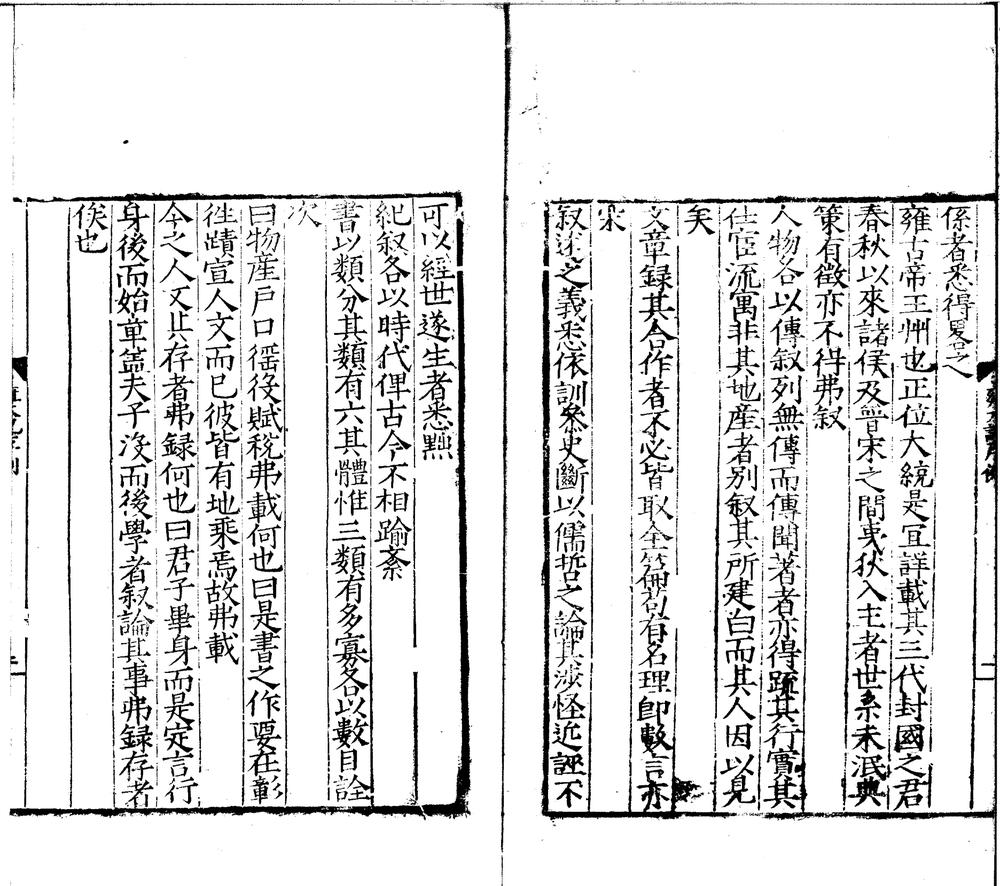 係者悉得畧之
雍古帝王州也正位大統是宜詳載其三代封國之君
春秋以來諸侯及晉宋之間夷狄入主者世系未泯典
策有徵亦不得弗叙
人物各以傳叙列無傳而傳聞著者亦得䟽其行實其
仕宦流寓非其地産者别叙其所建白而其人因以見
矣
文章録其合作者不必皆取全篇若有名理卽數言亦
采
叙述之義悉依訓叅史斷以儒哲之論其涉怪近誣不
可以經世遂生者悉黜
紀叙各以時代俾古今不相踰紊
書以類分其類有六其體惟三類有多寡各以數目詮
次
曰物産戸口徭役賦稅弗載何也曰是書之作要在彰
徃蹟宣人文而已彼皆有地乘焉故弗載
今之人又其存者弗録何也曰君子畢身而是定言行
身後而始章盖夫子沒而後學者叙論其事弗録存者
俟也